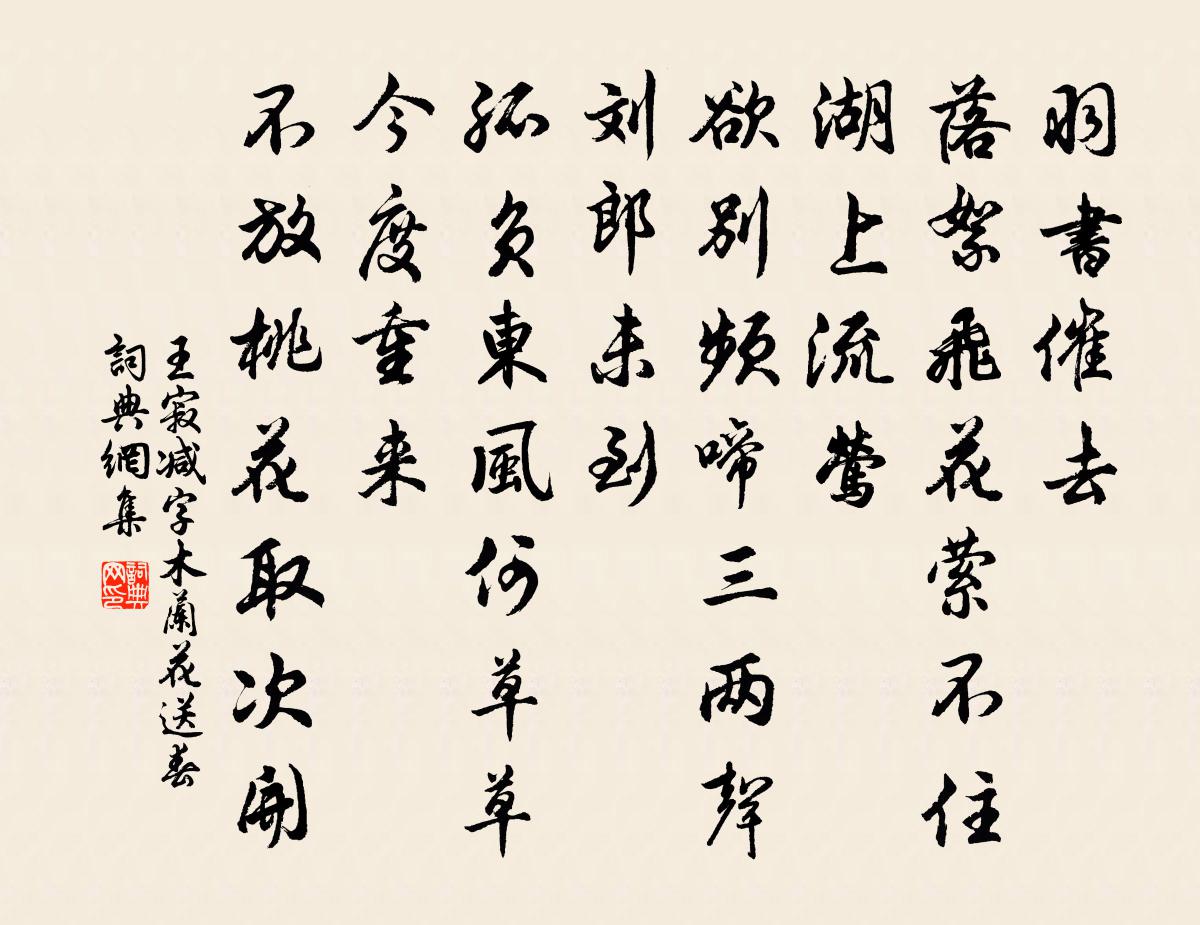 羽書催去
落絮飛花萦不住
湖上流鶯
欲别頻啼三两聲
刘郎未到
孤负東風何草草
今度重来
不放桃花取次開
王寂减字木蘭花送春
詞典網集
詞典网印